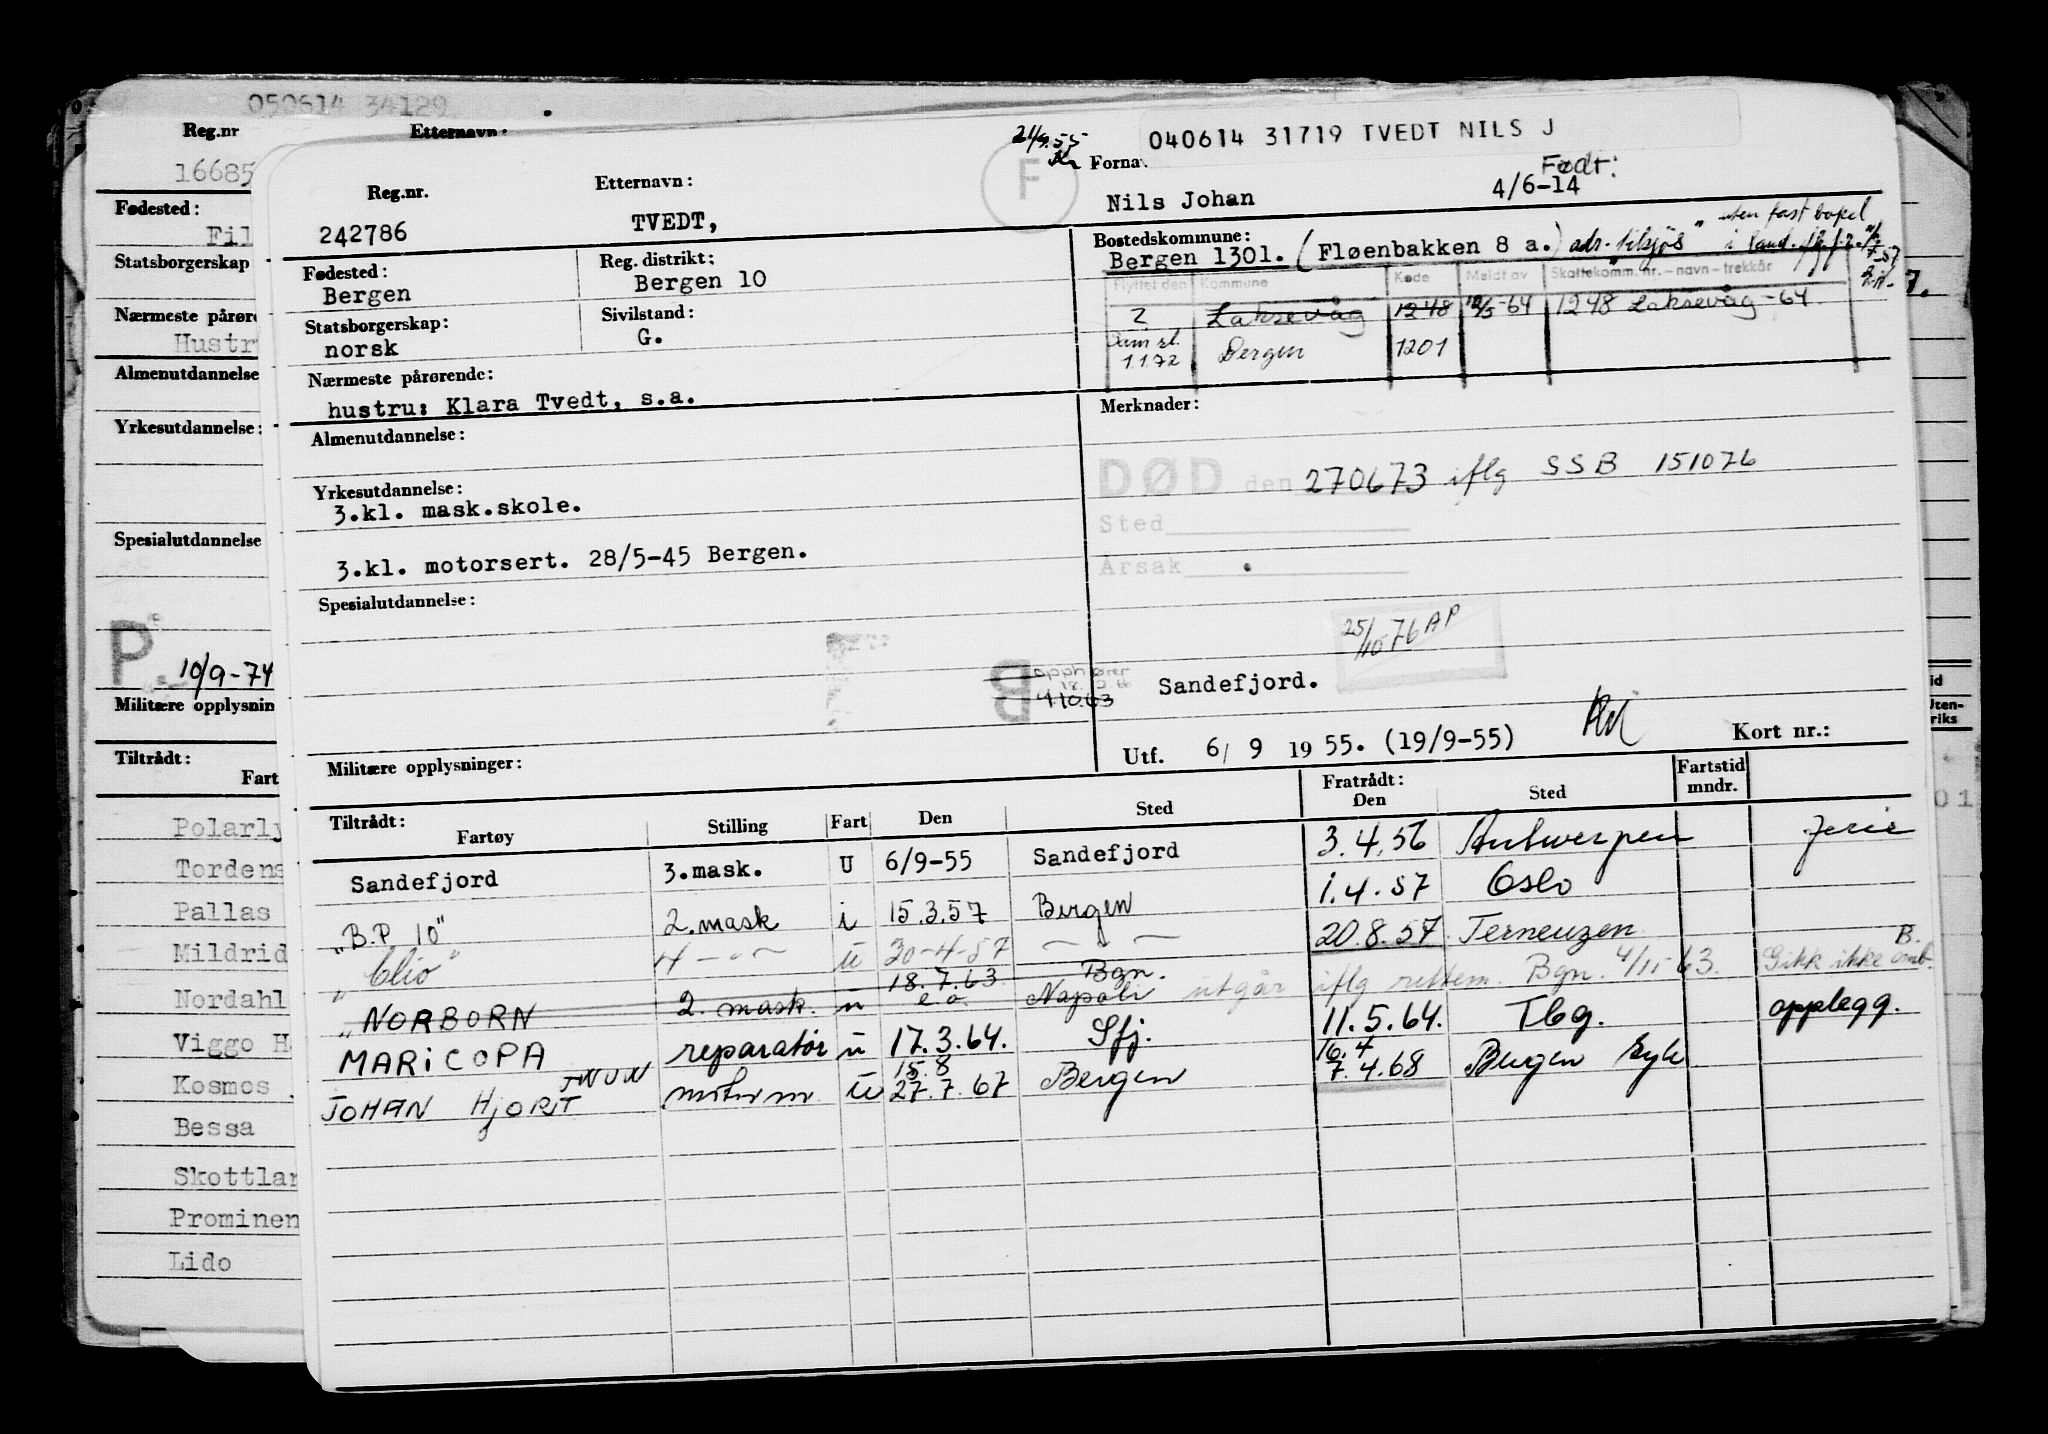 050614 34129
Reg.nr
Etternavn:
16685
Fødested:
Fil
Statsborgerskap
Nærmeste pårøre
Hustr
Almenutdannelse
Yrkesutdannelse:
Spesialutdannelse
P
10/9-74
Militære opplysnin
Tiltrådt:
Fart
Polarly
Tordens
Pallas
Mildrid
Nordahl
Viggo H
Kosmos
Bessa
Skottlan
Prominen
Lido
21/9.55
F
Forna.
040614 31719 TVEDT NILS J
Reg.nr.
Etternavn:
Født:
242786
TVEDT,
Nils Johan
4/6-14
Fødested:
Bergen
Reg. distrikt:
Bergen 10
Bostedskommune:
Bergen 1301. (Fløenbakken 8 a.) adr. tilsjøs "uten fast bopel
Statsborgerskap:
norsk
Sivilstand:
G.
Flyttet den Kommune Kode Meldt av Skattekomm. nr. – navn – trekkår
2 Laksevåg 1248 12/5-64 1248 Laksevåg -64.
1.1.72 Bergen 1201
Nærmeste pårørende:
hustru: Klara Tvedt, s.a.
Almenutdannelse:
Merknader:
Yrkesutdannelse:
3.kl. mask.skole.
DØD den 270673 iflg SSB 151076
Sted
3.kl. motorsert. 28/5-45 Bergen.
Årsak
Spesialutdannelse:
25/10-76 AP
B opphører
4.10.63
Sandefjord.
Utf. 6/ 9 1955. (19/9-55)
Kort nr.:
Militære opplysninger:
Tiltrådt:
Fartøy Stilling Fart Den Sted
Fratrådt:
Den Sted
Fartstid
mndr.
Sandefjord 3.mask. U 6/9-55 Sandefjord 3.4.56 Antwerpen ferie
"B.P 10" 2.mask i 15.3.57 Bergen 1.4.57 Oslo
"Clio" 4 — " — u 30-4-57 — " — 20.8.57 Terneuzen
"NORBORN 2. mask. u 18.7.63 e.o. Bgn. Napoli utgår iflg rettem. Bgn. 4/11-63. Gikk ikke omb. B.
MARICOPA reparatør u 17.3.64. Sfj. 11.5.64. Tbg. opplegg.
JOHAN HJORT u 15.8 27.7.67 Bergen 16.4 7.4.68 Bergen Syk